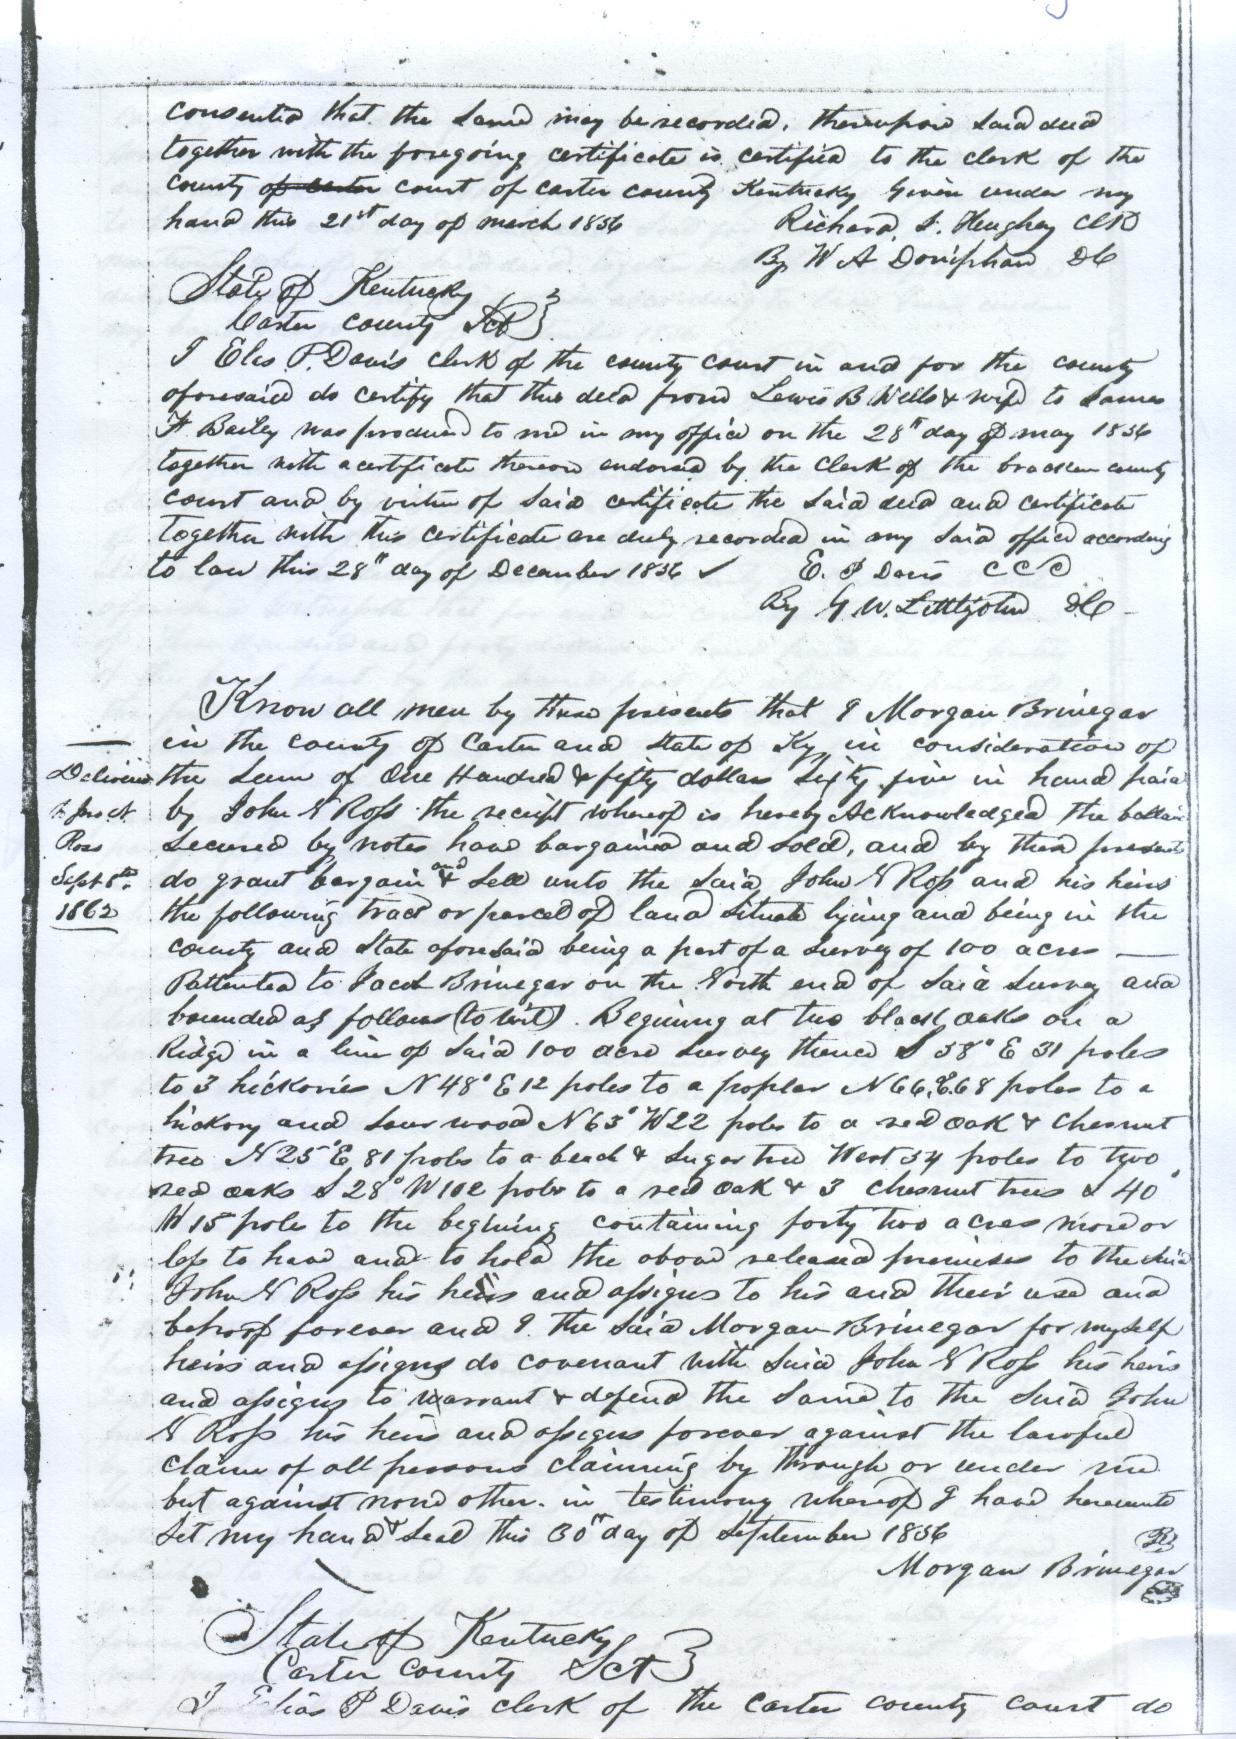 consented that the same may be recorded. thereupon said deed
together with the foregoing certificate is certified to the clerk of the
county of carter court of carter county Kentucky Given under my
hand this 21st day of march 1836
Richard J. Heughey Clk
By W A Doniphan DC
State of Kentucky
Carter county Sct
I Elas P. Davis clerk of the county court in and for the county
aforesaid do certify that this deed from Lewis B Wells & wife to James
F Bailey was produced to me in my office on the 28th day of may 1836
together with a certificate thereon endorsed by the clerk of the bracken county
court and by virtue of said certificate the said deed and certificate
together with this certificate are duly recorded in my said office according
to law this 28th day of December 1836
E. P Davis CCC
By G. W. Littlejohn DC
Know all men by these presents that I Morgan Brinegar
in the county of Carter and State of Ky in consideration of
the sum of One Hundred & fifty dollars sixty five in hand paid
by John N Ross the receipt whereof is hereby Acknowledged the ballance
secured by notes have bargained and sold, and by these presents
do grant bargain and & sell unto the said John N Ross and his heirs
the following tract or parcel of land situate lying and being in the
county and State aforesaid being a part of a survey of 100 acres
Pattented to Jacob Brinegar on the North end of said survey and
bounded as follows (to wit). Begining at two black oaks on a
Ridge in a line of said 100 acre survey thence S 38° E 31 poles
to 3 hickories N 48° E 12 poles to a poplar N 66. E. 68 poles to a
hickory and sour wood N 63° W 22 poles to a red oak & chesnut
tree N 25° E 81 poles to a beach & sugar tree West 34 poles to two
red oaks S 28° W 102 poles to a red oak & 3 chesnut trees S 40°
W 15 poles to the begining containing forty two acres more or
less to have and to hold the above released premises to the said
John N Ross his heirs and assigns to his and their use and
behoof forever and I. the said Morgan Brinegar for myself
heirs and assigns do covenant with said John N Ross his heirs
and assigns to warrant & defend the same to the said John
N Ross his heirs and assigns forever against the lawful
claims of all persons claiming by through or under me
but against none other. in testimony whereof I have hereunto
set my hand & seal this 30th day of September 1836
Morgan Brinegar
Delivered
to Jno N
Ross
Sept 8th
1862
State of Kentucky
Carter county Sct
I Elias P Davis clerk of the carter county court do